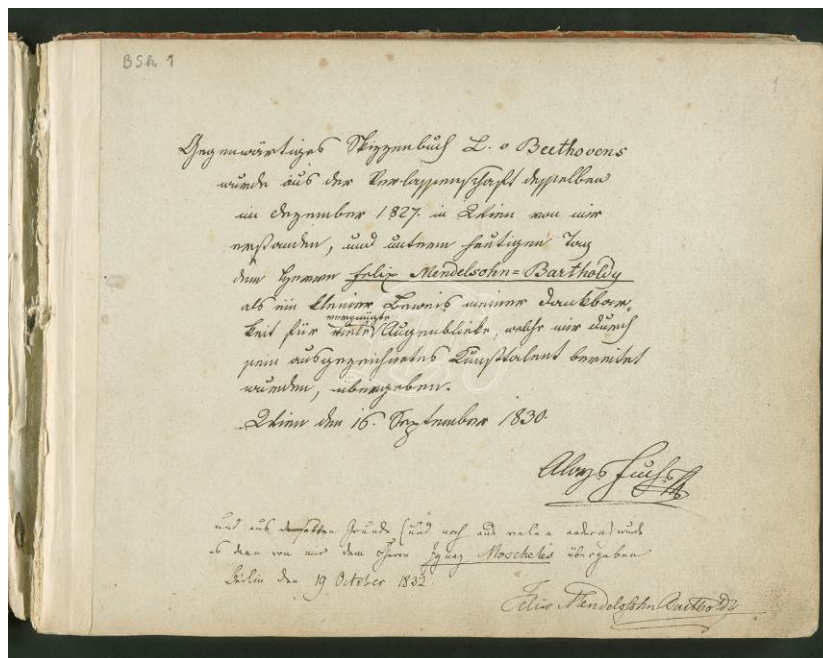 BSk 1
1
Gegenwärtiges Skizzenbuch L. v Beethovens
wurde aus der Verlassenschaft desselben
im Dezember 1827. in Wien von mir
erstanden, und unterm heutigen Tag
dem Herrn Felix Mendelsohn=Bartholdy
als ein kleiner Beweis meiner Dankbar-
keit für viele vergnügte Augenblicke, welche mir durch
sein ausgezeichnetes Kunsttalent bereitet
wurden, übergeben.
Wien den 16. September 1830.
Aloys Fuchs
und aus demselben Grunde (und noch aus vielen andern) wurde
es dann von mir dem Herrn Ignaz Moscheles übergeben
Berlin den 19 October 1832.
Felix Mendelssohn Bartholdy